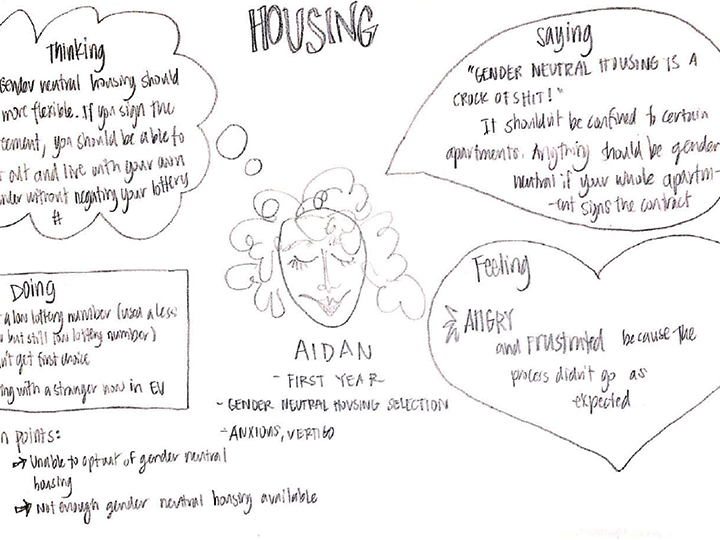 HOUSING
Thinking
Gender neutral housing should
more flexible. If you sign the
eement, you should be able to
out and live with your own
nder without negating your lottery
#
saying
"GENDER NEUTRAL HOUSING IS A
CROCK OF SHIT!"
It shouldn't be confined to certain
apartments. Anything should be gender
neutral if your whole apartm-
-ent signs the contract
Doing
a low lottery number (used a less
but still low lottery number)
n't get first choice
ing with a stranger now in EV
Feeling
ANGRY
and FRUSTRATED because the
process didn't go as
expected
AIDAN
- FIRST YEAR
- GENDER NEUTRAL HOUSING SELECTION
- ANXIOUS, VERTIGO
n points:
→ Unable to opt out of gender neutral
housing
→ Not enough gender neutral housing available